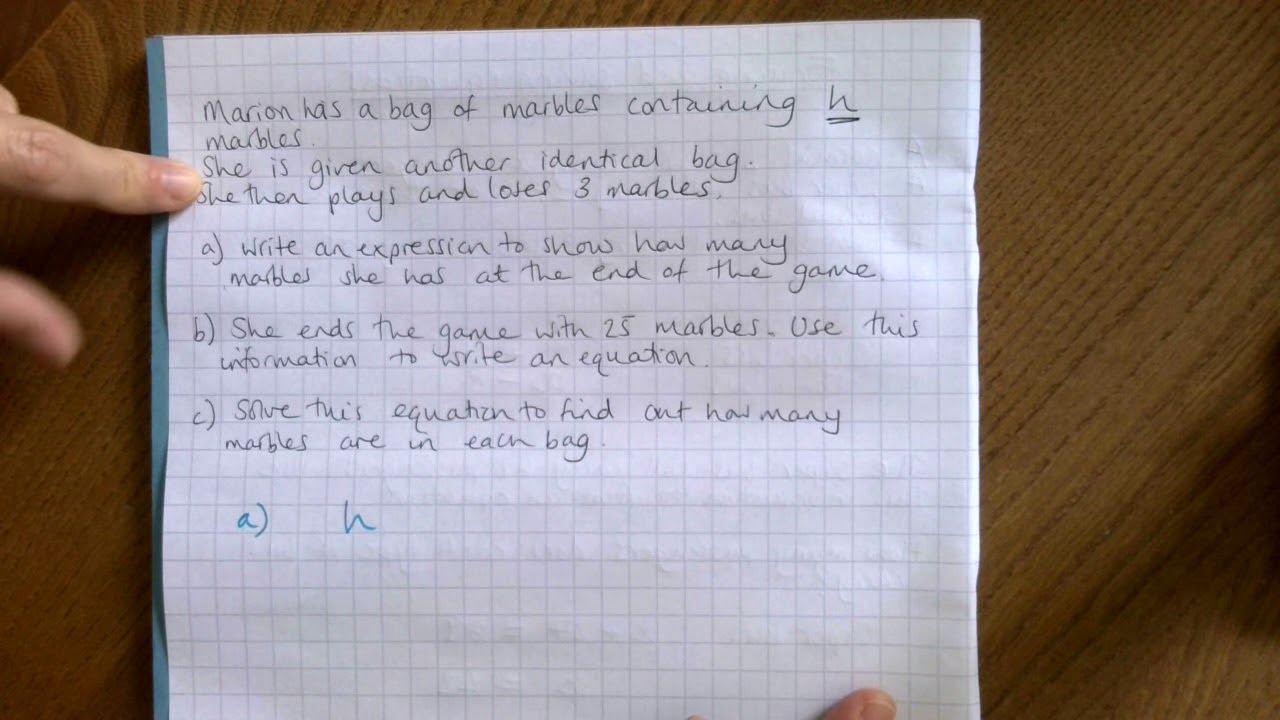 Marion has a bag of marbles containing h
marbles.
She is given another identical bag.
She then plays and loses 3 marbles.
a) Write an expression to show how many
marbles she has at the end of the game.
b) She ends the game with 25 marbles. Use this
information to write an equation.
c) Solve this equation to find out how many
marbles are in each bag.
a) h